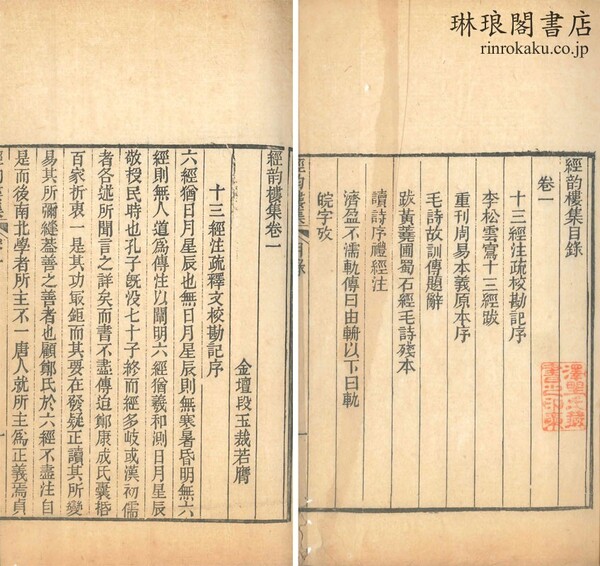 琳琅閣書店
rinrokaku.co.jp
經韵樓集目錄
卷一
十三經注疏校勘記序
李松雲寫十三經跋
重刊周易本義原本序
毛詩故訓傳題辭
跋黃蕘圃蜀石經毛詩殘本
讀詩序禮經注
濟盈不濡軌傳曰由輈以下曰軌
皖字攷
經韵樓集卷一
金壇段玉裁若膺
十三經注疏釋文校勘記序
六經猶日月星辰也無日月星辰則無寒暑昏明無六
經則無人道爲傳注以闡明六經猶羲和測日月星辰
敬授民時也孔子旣没七十子終而經多歧或漢初儒
者各述所聞言之詳矣而書不盡傳迨鄭康成氏囊栝
百家折衷一是其功㝡鉅而其要在發疑正讀其所變
易其所彌縫葢善之善者也顧鄭氏於六經不盡注自
是而後南北學者所主不一唐人就所主爲正義焉貞